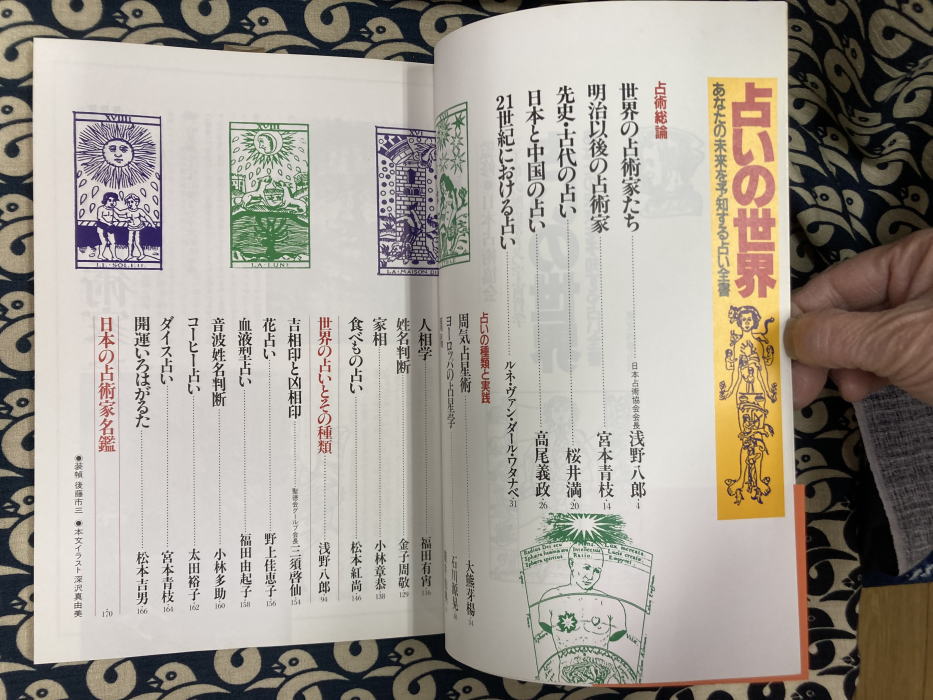 占いの世界
あなたの未来を予知する占い全書
占術総論
世界の占術家たち 日本占術協会会長 浅野八郎 4
明治以後の占術家 宮本青枝 14
先史・古代の占い 桜井満 20
日本と中国の占い 高尾義政 26
21世紀における占い ルネ・ヴァン・ダール・ワタナベ 31
占いの種類と実践
周気占星術 大熊芽楊 34
ヨーロッパの占星学 石川源晃
人相学 福田有宵 116
姓名判断 金子周敬 129
家相 小林章恭 138
食べもの占い 松本紅尚 146
世界の占いとその種類 浅野八郎 94
吉相印と凶相印 聖徳会グループ会長 三須啓仙 154
花占い 野上佳恵子 156
血液型占い 福田由起子 158
音波姓名判断 小林多助 160
コーヒー占い 太田裕子 162
ダイス占い 宮本青枝 164
開運いろはがるた 松本吉男 166
日本の占術家名鑑 170
●装幀 後藤市三 ●本文イラスト 深沢真由美
XVIII
LA LUNE
XVIIII
LE SOLEIL
XVI
LA MAISON DI